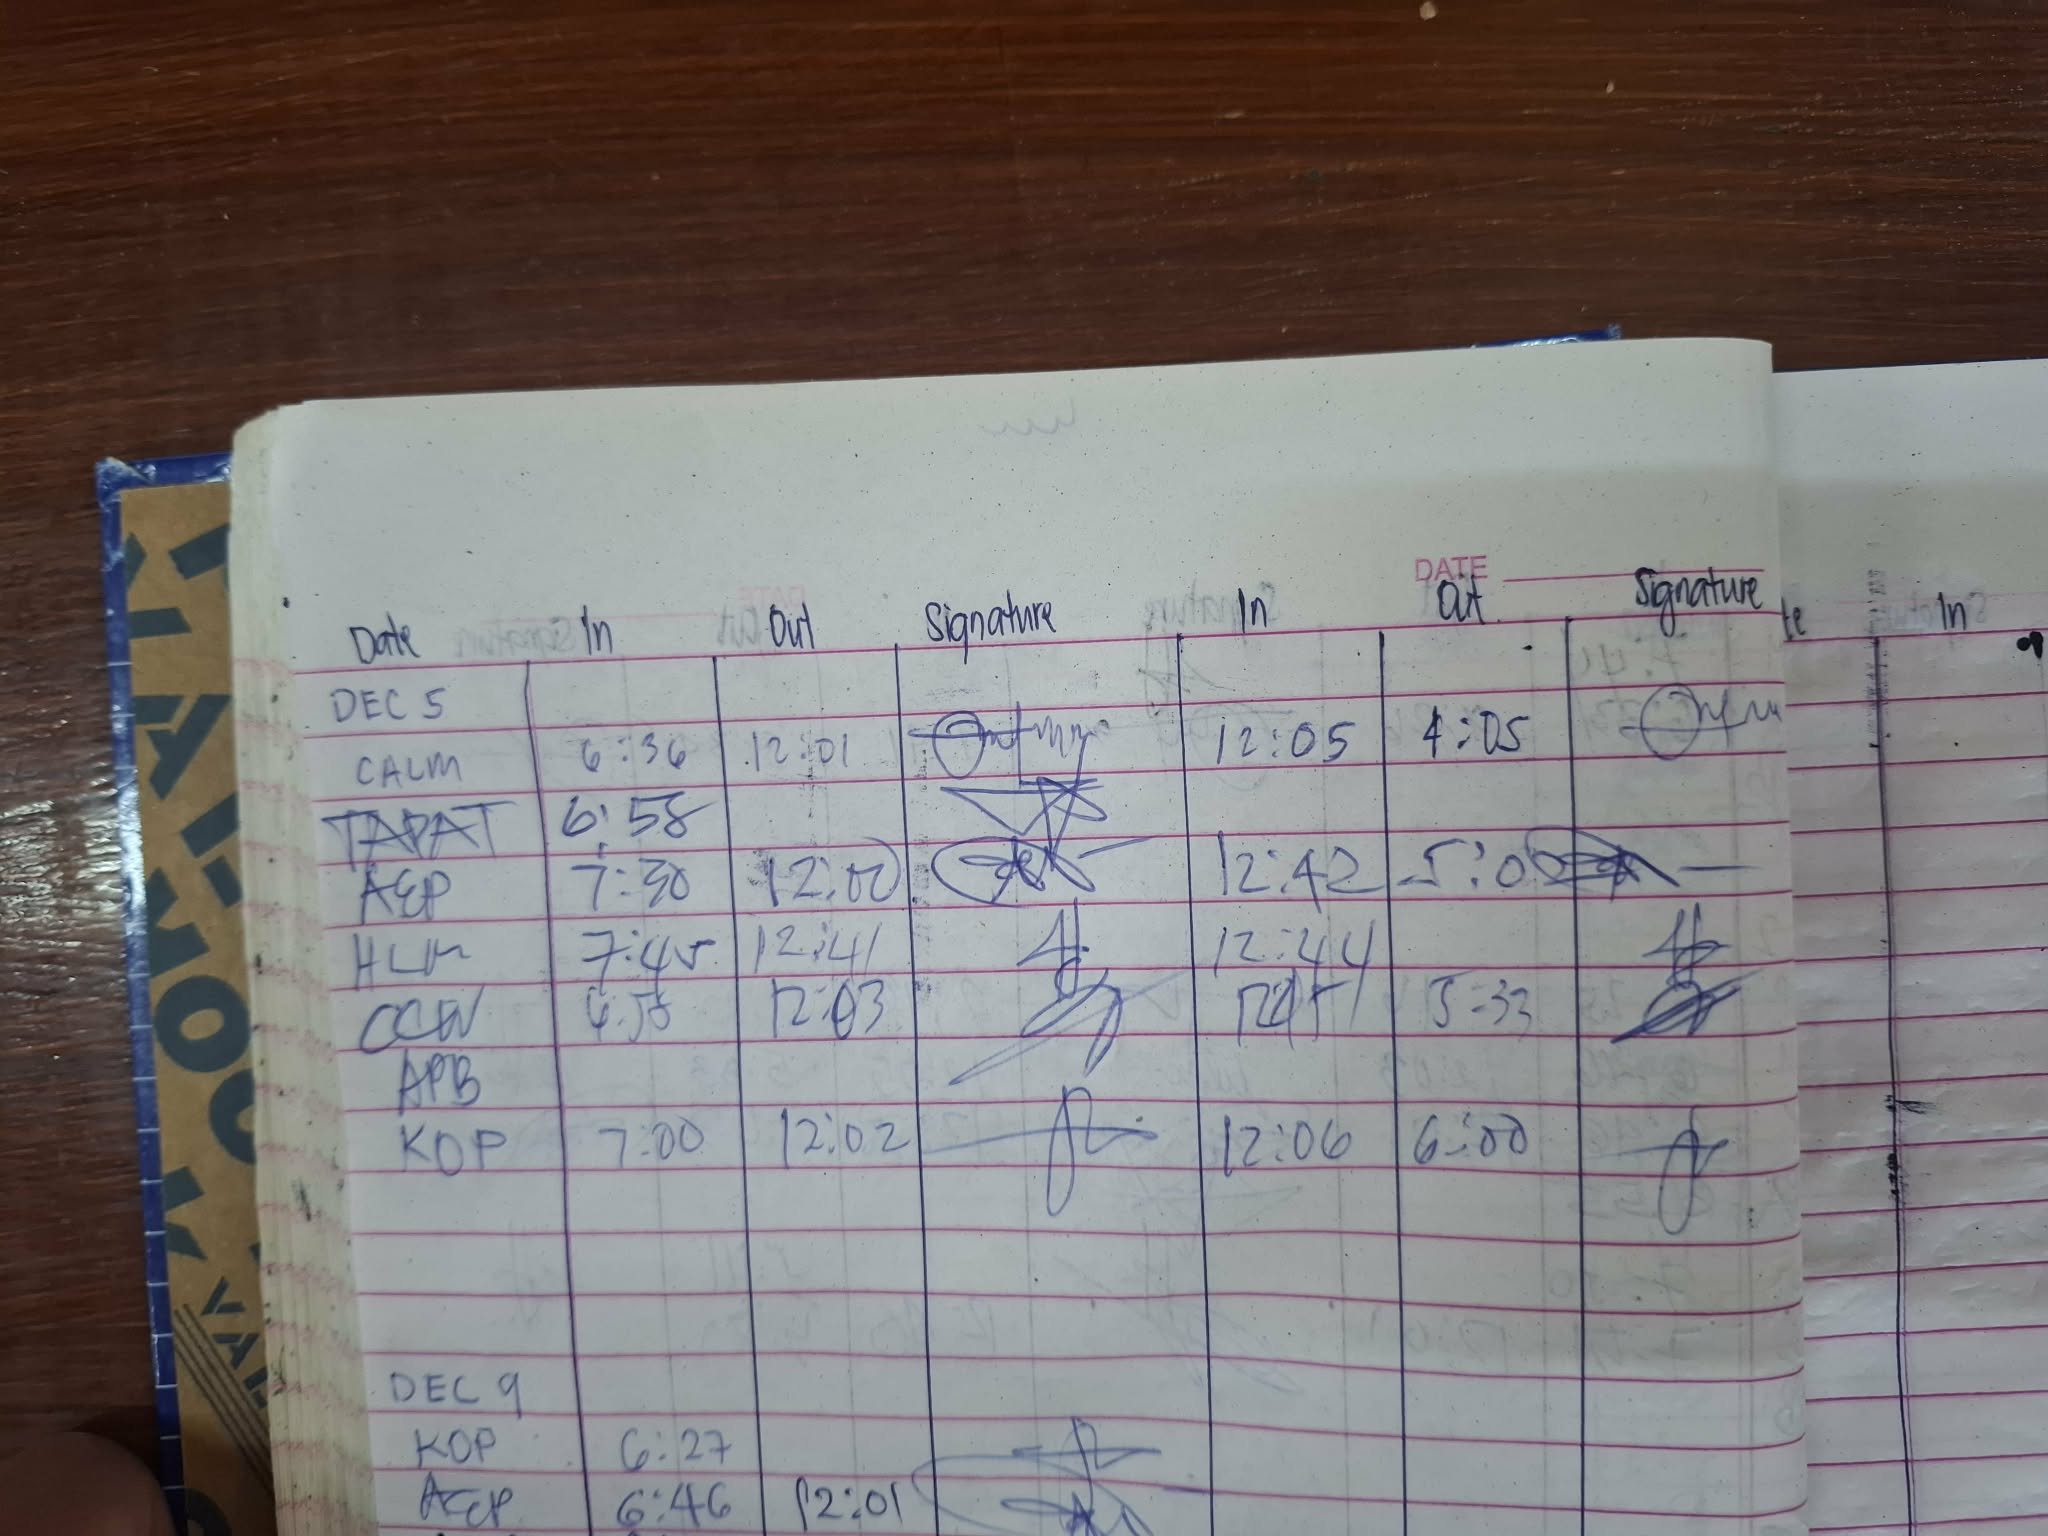 DATE
Date In Out Signature In Out Signature
DEC 5
CALM 6:36 12:01 12:05 4:05
TAPAT 6:58
AEP 7:30 12:00 12:42 5:00
HLM 7:45 12:41 12:44
12:03 5:33
APB
KOP 7:00 12:02 12:06 6:00
DEC 9
KOP 6:27
AEP 6:46 12:01
In